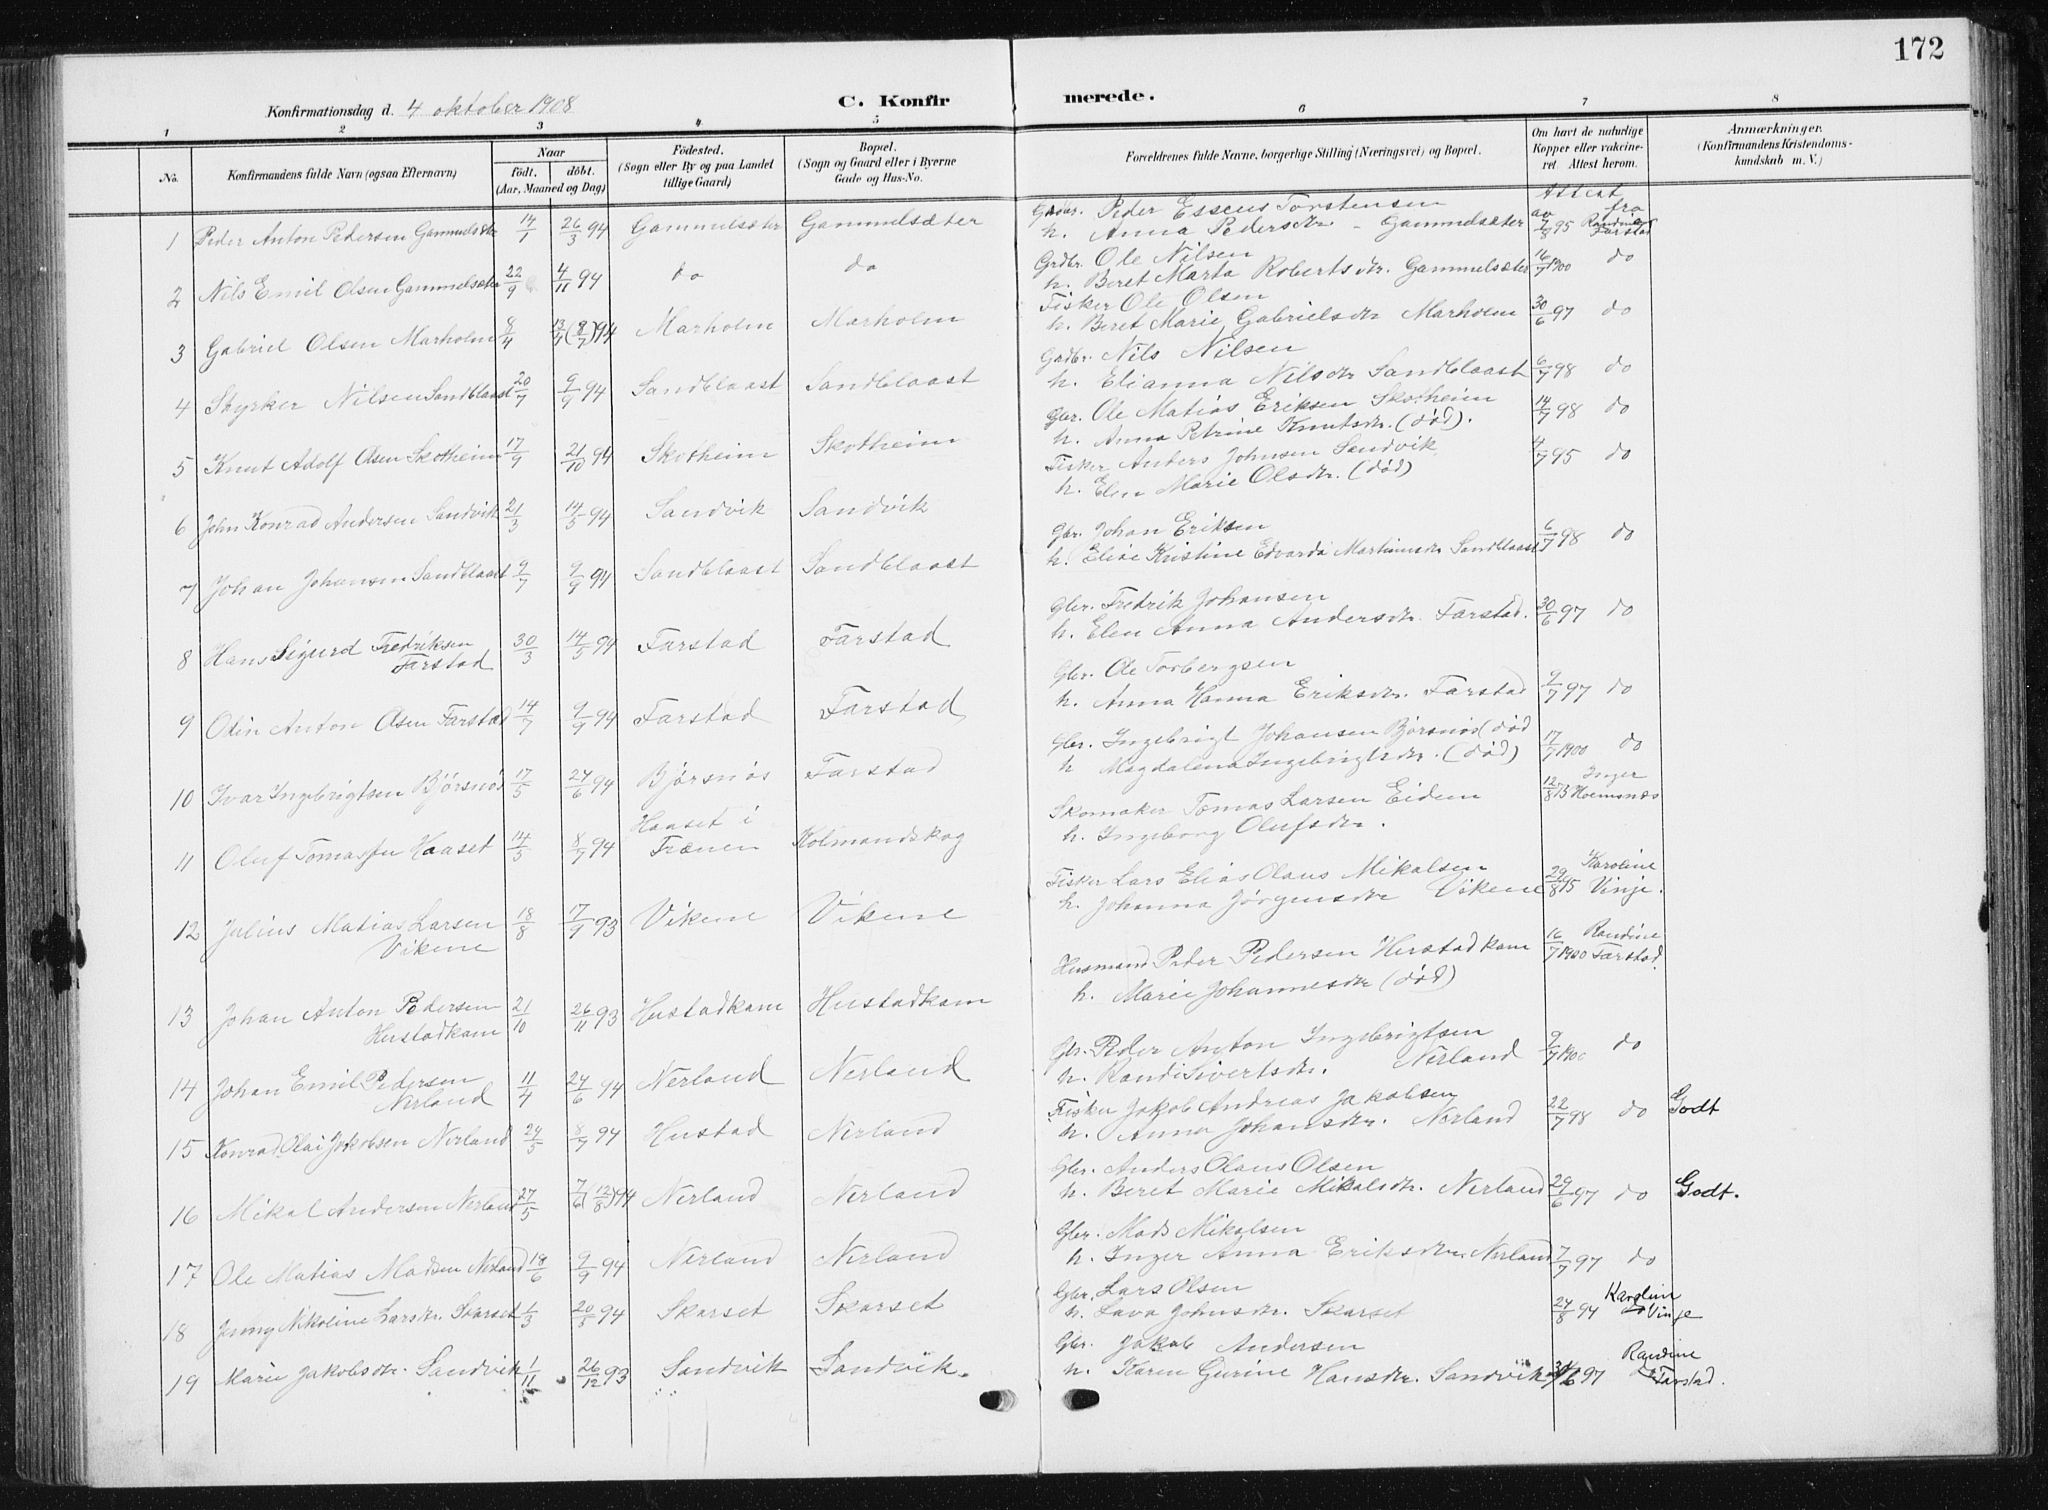 172
Konfirmationsdag d. 4 oktober 1908
C. Konfirmerede.
1 2 3 4 5 6 7 8
No.
Konfirmandens fulde Navn (ogsaa Efternavn)
Naar
födt. döbt.
(Aar, Maaned og Dag)
Födested.
(Sogn eller By og paa Landet
tillige Gaard)
Bopæl.
(Sogn og Gaard eller i Byerne
Gade og Hus-No.
Forældrenes fulde Navne, borgerlige Stilling (Næringsvei) og Bopæl.
Om havt de naturlige
Kopper eller vakcine-
ret. Attest herom.
Anmærkninger.
(Konfirmandens Kristendoms-
kundskab m. V.)
Attest
av fra
1 Peder Anton Pedersen Gammelsæter 14/1 26/3 94 Gammelsæter Gammelsæter Grdbr. Peder Esseus Torstensen
h. Anna Pedersdtr - Gammelsæter 7/8 95 Randine Farstad
2 Nils Emil Olsen Gammelsæter 22/9 4/11 94 do do Grdbr. Ole Nilsen
h. Beret Marta Robertsdtr. Gammelsæter 16/7 1900 do
3 Gabriel Olsen Marholm 9/4 13/4 (8/7) 94 Marholm Marholm Fisker Ole Olsen
h. Beret Marie Gabrielsdtr Marholm 30/6 97 do
4 Styrker Nilsen Sandblaast 20/7 9/9 94 Sandblaast Sandblaast Grdbr. Nils Nilsen
h. Elianna Nilsdtr Sandblaast 6/7 98 do
5 Knut Adolf Olsen Skotheim 17/9 21/10 94 Skotheim Skotheim Gbr. Ole Matias Eriksen Skotheim
h. Anna Petrine Knutsdtr. (død). 14/7 98 do
6 John Konrad Andersen Sandvik 21/3 14/5 94 Sandvik Sandvik Fisker Anders Johnsen Sandvik
h. Elen Marie Olsdtr. (død) 4/7 95 do
7 Johan Johansen Sandblaast 9/7 9/9 94 Sandblaast Sandblaast Gbr. Johan Eriksen
h. Elise Kristine Edvarda Martinusdtr Sandblaast 6/7 98 do
8 Hans Sigurd Fredriksen
Farstad 30/3 14/5 94 Farstad Farstad Gbr. Fredrik Johansen
h. Elen Anna Andersdtr. Farstad. 30/6 97 do
9 Odin Anton Olsen Farstad 14/7 9/9 94 Farstad Farstad Gbr. Ole Torbergsen
h. Anna Hanna Eriksdtr. Farstad 9/7 97 do
10 Ivar Ingebrigtsen Bjørsnøs 17/5 24/6 94 Bjørsnøs Farstad Gbr. Ingebrigt Johansen Bjørsnøs (død
h Magdalena Ingebrigtsdtr. (død) 17/7 1900 do
11 Oluf Tomassen Haaset 14/5 8/7 94 Haaset i
Frænen Kolmandskog Skomaker Tomas Larsen Eidem
h. Ingeborg Olufsdtr. 12/8 Inger
Hoemsnæs
12 Julius Matias Larsen
Vikene 18/8 17/9 93 Vikene Vikene Fisker Lars Elias Olaus Mikalsen
h. Johanna Jörgensdtr Vikene 29/8 95 Karoline
Vinje.
13 Johan Anton Pedersen
Hustadkam 21/10 26/11 93 Hustadkam Hustadkam Husmand Peder Pedersen Hustadkam
h. Marie Johannesdtr (død) 16/7 1900 Randine
Farstad.
14 Johan Emil Pedersen
Nerland 11/4 24/6 94 Nerland Nerland Gbr. Peder Anton Ingebrigtsen
h. Randi Sivertsdtr. Nerland 9/7 1900 do
15 Konrad Olai Jakobsen Nerland 24/5 8/7 94 Hustad Nerland Fisker Jakob Andreas Jakobsen
h. Anna Johansdtr. Nerland 22/7 98 do Godt
16 Mikal Andersen Nerland 27/5 7/6 (12/8) 94 Nerland Nerland Gbr. Anders Olaus Olsen
h. Beret Marie Mikalsdtr. Nerland 29/6 97 do Godt.
17 Ole Matias Madsen Nerland 18/6 9/9 94 Nerland Nerland Gbr. Mads Mikalsen
h. Inger Anna Eriksdtr. Nerland 7/7 97 do
18 Jenny Nikoline Larsdtr. Skarset 1/3 20/5 94 Skarset Skarset Gbr. Lars Olsen
h. Lava Johnsdtr. Skarset 24/8 94 Karoline
Vinje
19 Marie Jakobsdtr. Sandvik 1/11 26/12 93 Sandvik Sandvik. Gbr. Jakob Andersen
h. Karen Gurine Hansdtr. Sandvik 6 97 Randine
Farstad.